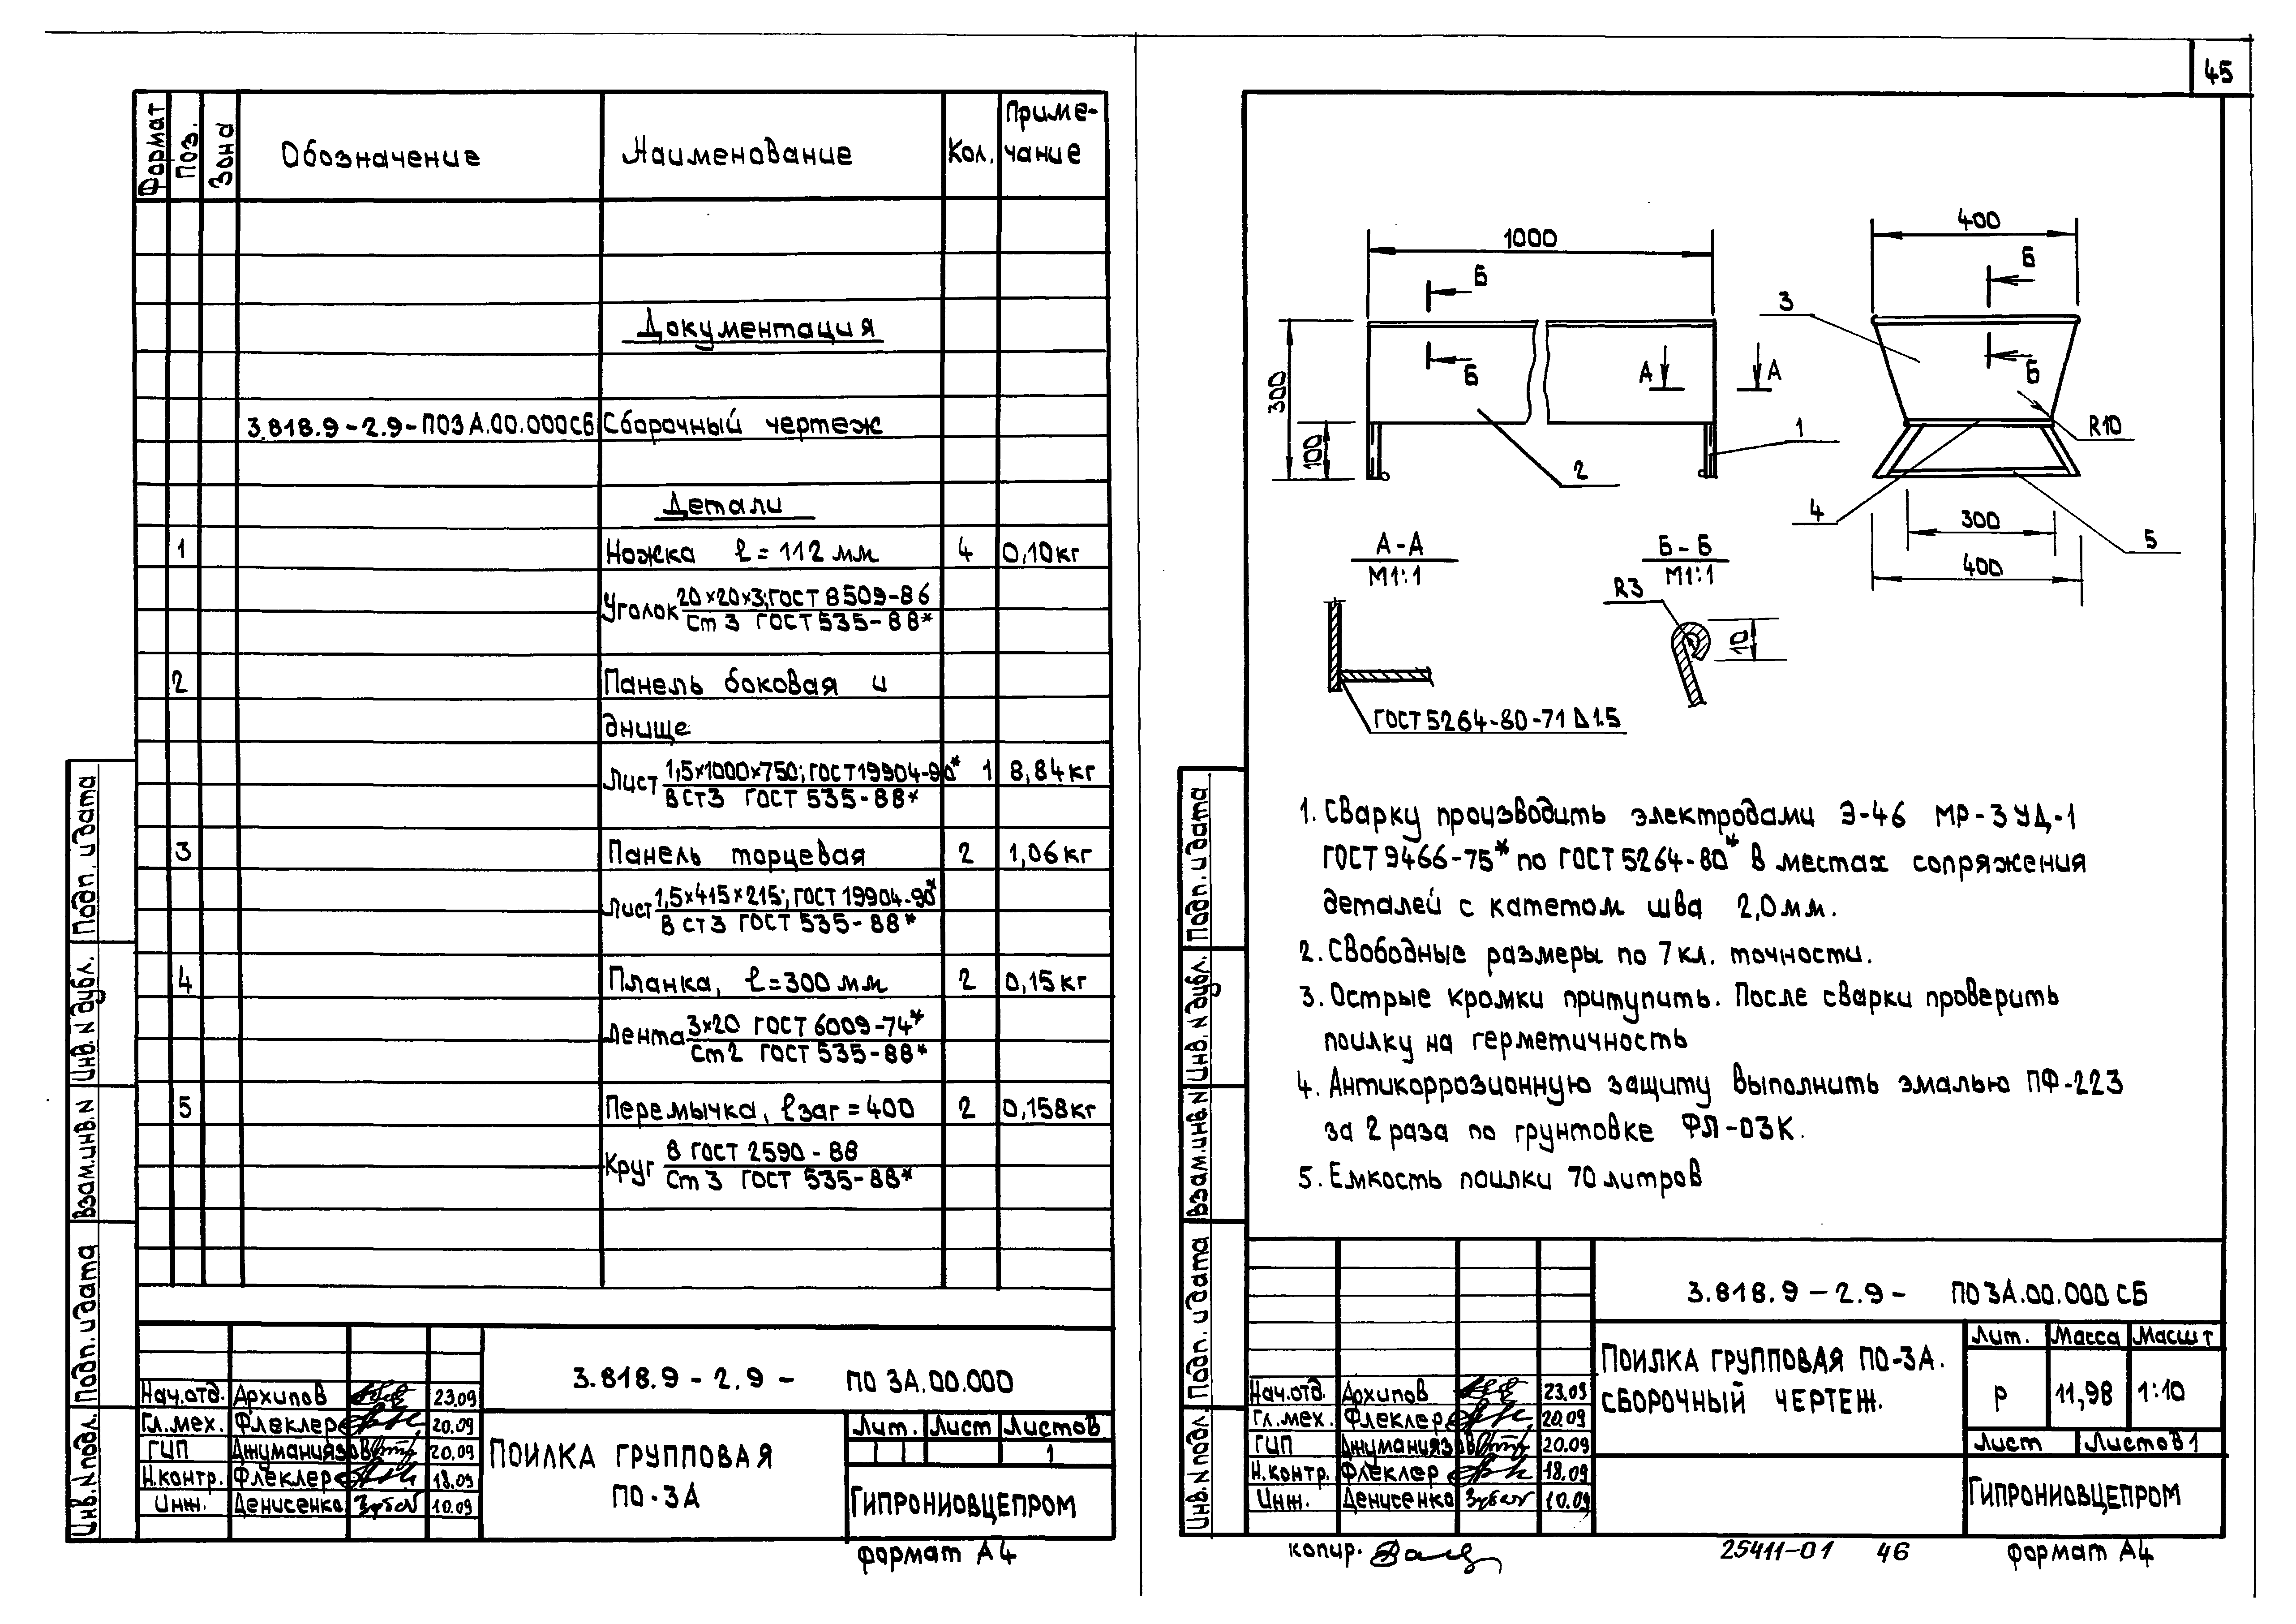 45
Формат Поз. Зона Обозначение Наименование Кол. Приме-
чание
Документация
3.818.9-2.9-ПО3А.00.000СБ Сборочный чертеж
Детали
1 Ножка ℓ=112 мм 4 0,10кг
Уголок 20×20×3; ГОСТ 8509-86
Ст 3 ГОСТ 535-88*
2 Панель боковая и
днище
Лист 1,5×1000×750; ГОСТ 19904-90* 1 8,84кг
В ст3 ГОСТ 535-88*
3 Панель торцевая 2 1,06кг
Лист 1,5×415×215; ГОСТ 19904-90*
В ст3 ГОСТ 535-88*
4 Планка, ℓ=300 мм 2 0,15кг
Лента 3×20 ГОСТ 6009-74*
Ст2 ГОСТ 535-88*
5 Перемычка, ℓзаг=400 2 0,158кг
Круг 8 ГОСТ 2590-88
Ст 3 ГОСТ 535-88*
Подп. и дата
Инв. N дубл.
Взам. инв. N
Подп. и дата
Инв. N подл.
3.818.9-2.9- ПО 3А.00.000
Нач.отд. Архипов 23.09
Гл.мех. Флеклер 20.09
ГИП Джуманиязов 20.09
Н.контр. Флеклер 18.09
Инж. Денисенко 10.09
ПОИЛКА ГРУППОВАЯ
ПО-3А
Лит. Лист Листов
1
ГИПРОНИОВЦЕПРОМ
формат А4
1000
400
Б Б
300
100
Б А А Б
3
R10
1
2
4
300
5
400
А-А
М1:1
Б-Б
М1:1
R3
10
ГОСТ 5264-80-Т1 Δ1.5
1. Сварку производить электродами Э-46 МР-3 УД-1
ГОСТ 9466-75* по ГОСТ 5264-80* в местах сопряжения
деталей с катетом шва 2,0мм.
2. Свободные размеры по 7 кл. точности.
3. Острые кромки притупить. После сварки проверить
поилку на герметичность
4. Антикоррозионную защиту выполнить эмалью ПФ-223
за 2 раза по грунтовке ФЛ-03К.
5. Емкость поилки 70 литров
Подп. и дата
Инв. N дубл.
Взам. инв. N
Подп. и дата
Инв. N подл.
3.818.9-2.9- ПО 3А.00.000 СБ
Нач.отд. Архипов 23.09
Гл.мех. Флеклер 20.09
ГИП Джуманиязов 20.09
Н.контр. Флеклер 18.09
Инж. Денисенко 10.09
ПОИЛКА ГРУППОВАЯ ПО-3А.
СБОРОЧНЫЙ ЧЕРТЕЖ.
Лит. Масса Масшт
Р 11,98 1:10
Лист Листов 1
ГИПРОНИОВЦЕПРОМ
копир.
25411-01 46
формат А4